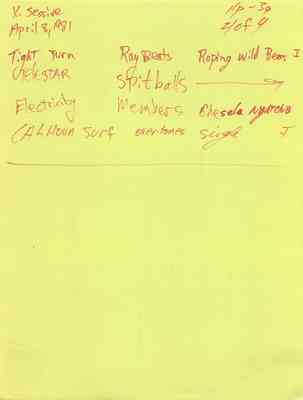 X. Sessive
April 3, 1981
Np - 30
2/of 4
Tight Turn Ray Beats Roping Wild Bears I
TELSTAR Spitballs
Electricity Members Chesela
CALHOUN Surf overtones single I